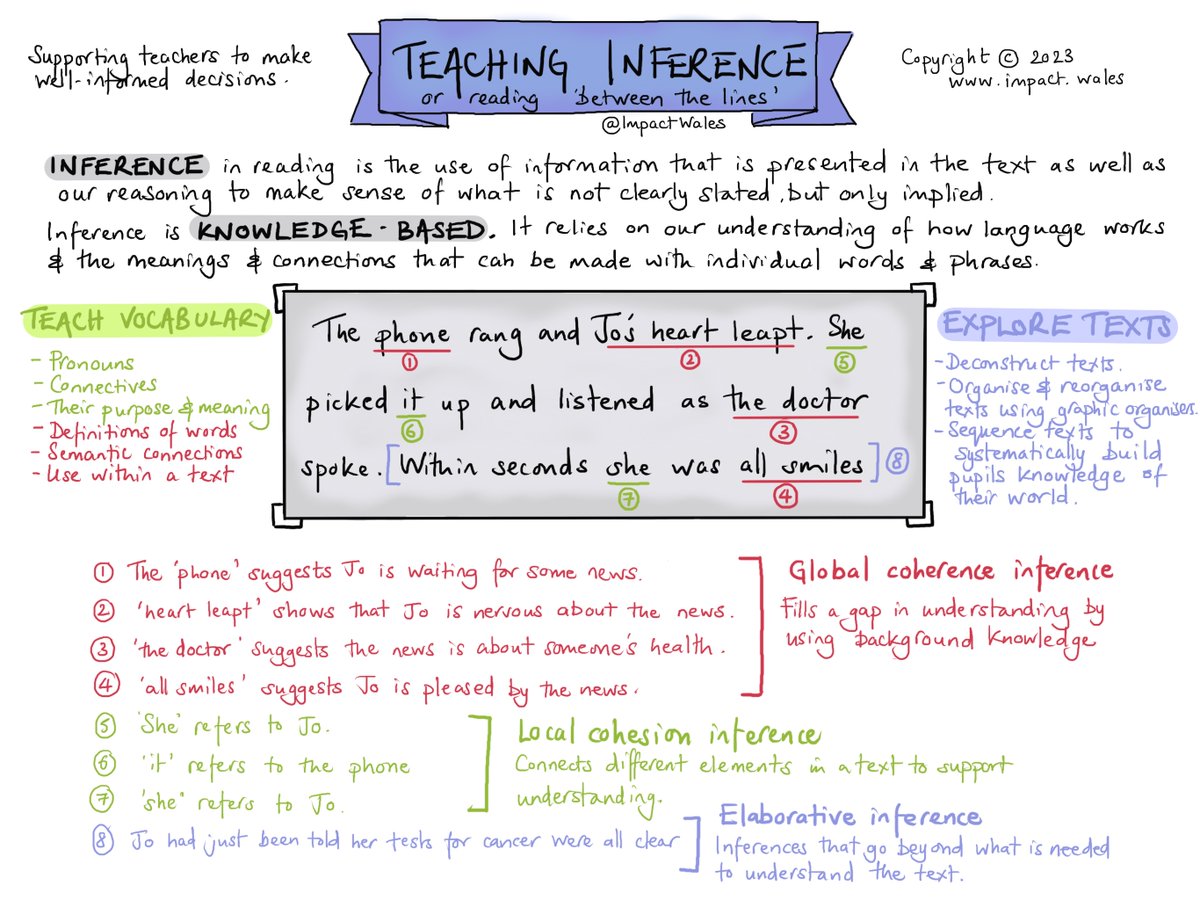 Supporting teachers to make
well-informed decisions.
TEACHING INFERENCE
or reading 'between the lines'
@ImpactWales
Copyright © 2023
www.impact.wales
INFERENCE in reading is the use of information that is presented in the text as well as
our reasoning to make sense of what is not clearly stated, but only implied.
Inference is KNOWLEDGE-BASED. It relies on our understanding of how language works
& the meanings & connections that can be made with individual words & phrases.
TEACH VOCABULARY
- Pronouns
- Connectives
- Their purpose & meaning
- Definitions of words
- Semantic connections
- Use within a text
The phone rang and Jo's heart leapt. She
① ② ⑤
picked it up and listened as the doctor
⑥ ③
spoke. [Within seconds she was all smiles] ⑧
⑦ ④
EXPLORE TEXTS
- Deconstruct texts.
- Organise & reorganise
texts using graphic organisers.
- Sequence texts to
systematically build
pupils knowledge of
their world.
① The 'phone' suggests Jo is waiting for some news.
② 'heart leapt' shows that Jo is nervous about the news.
③ 'the doctor' suggests the news is about someone's health.
④ 'all smiles' suggests Jo is pleased by the news.
Global coherence inference
Fills a gap in understanding by
using background knowledge
⑤ 'She' refers to Jo.
⑥ 'it' refers to the phone
⑦ 'she' refers to Jo.
Local cohesion inference
Connects different elements in a text to support
understanding.
⑧ Jo had just been told her tests for cancer were all clear
Elaborative inference
Inferences that go beyond what is needed
to understand the text.